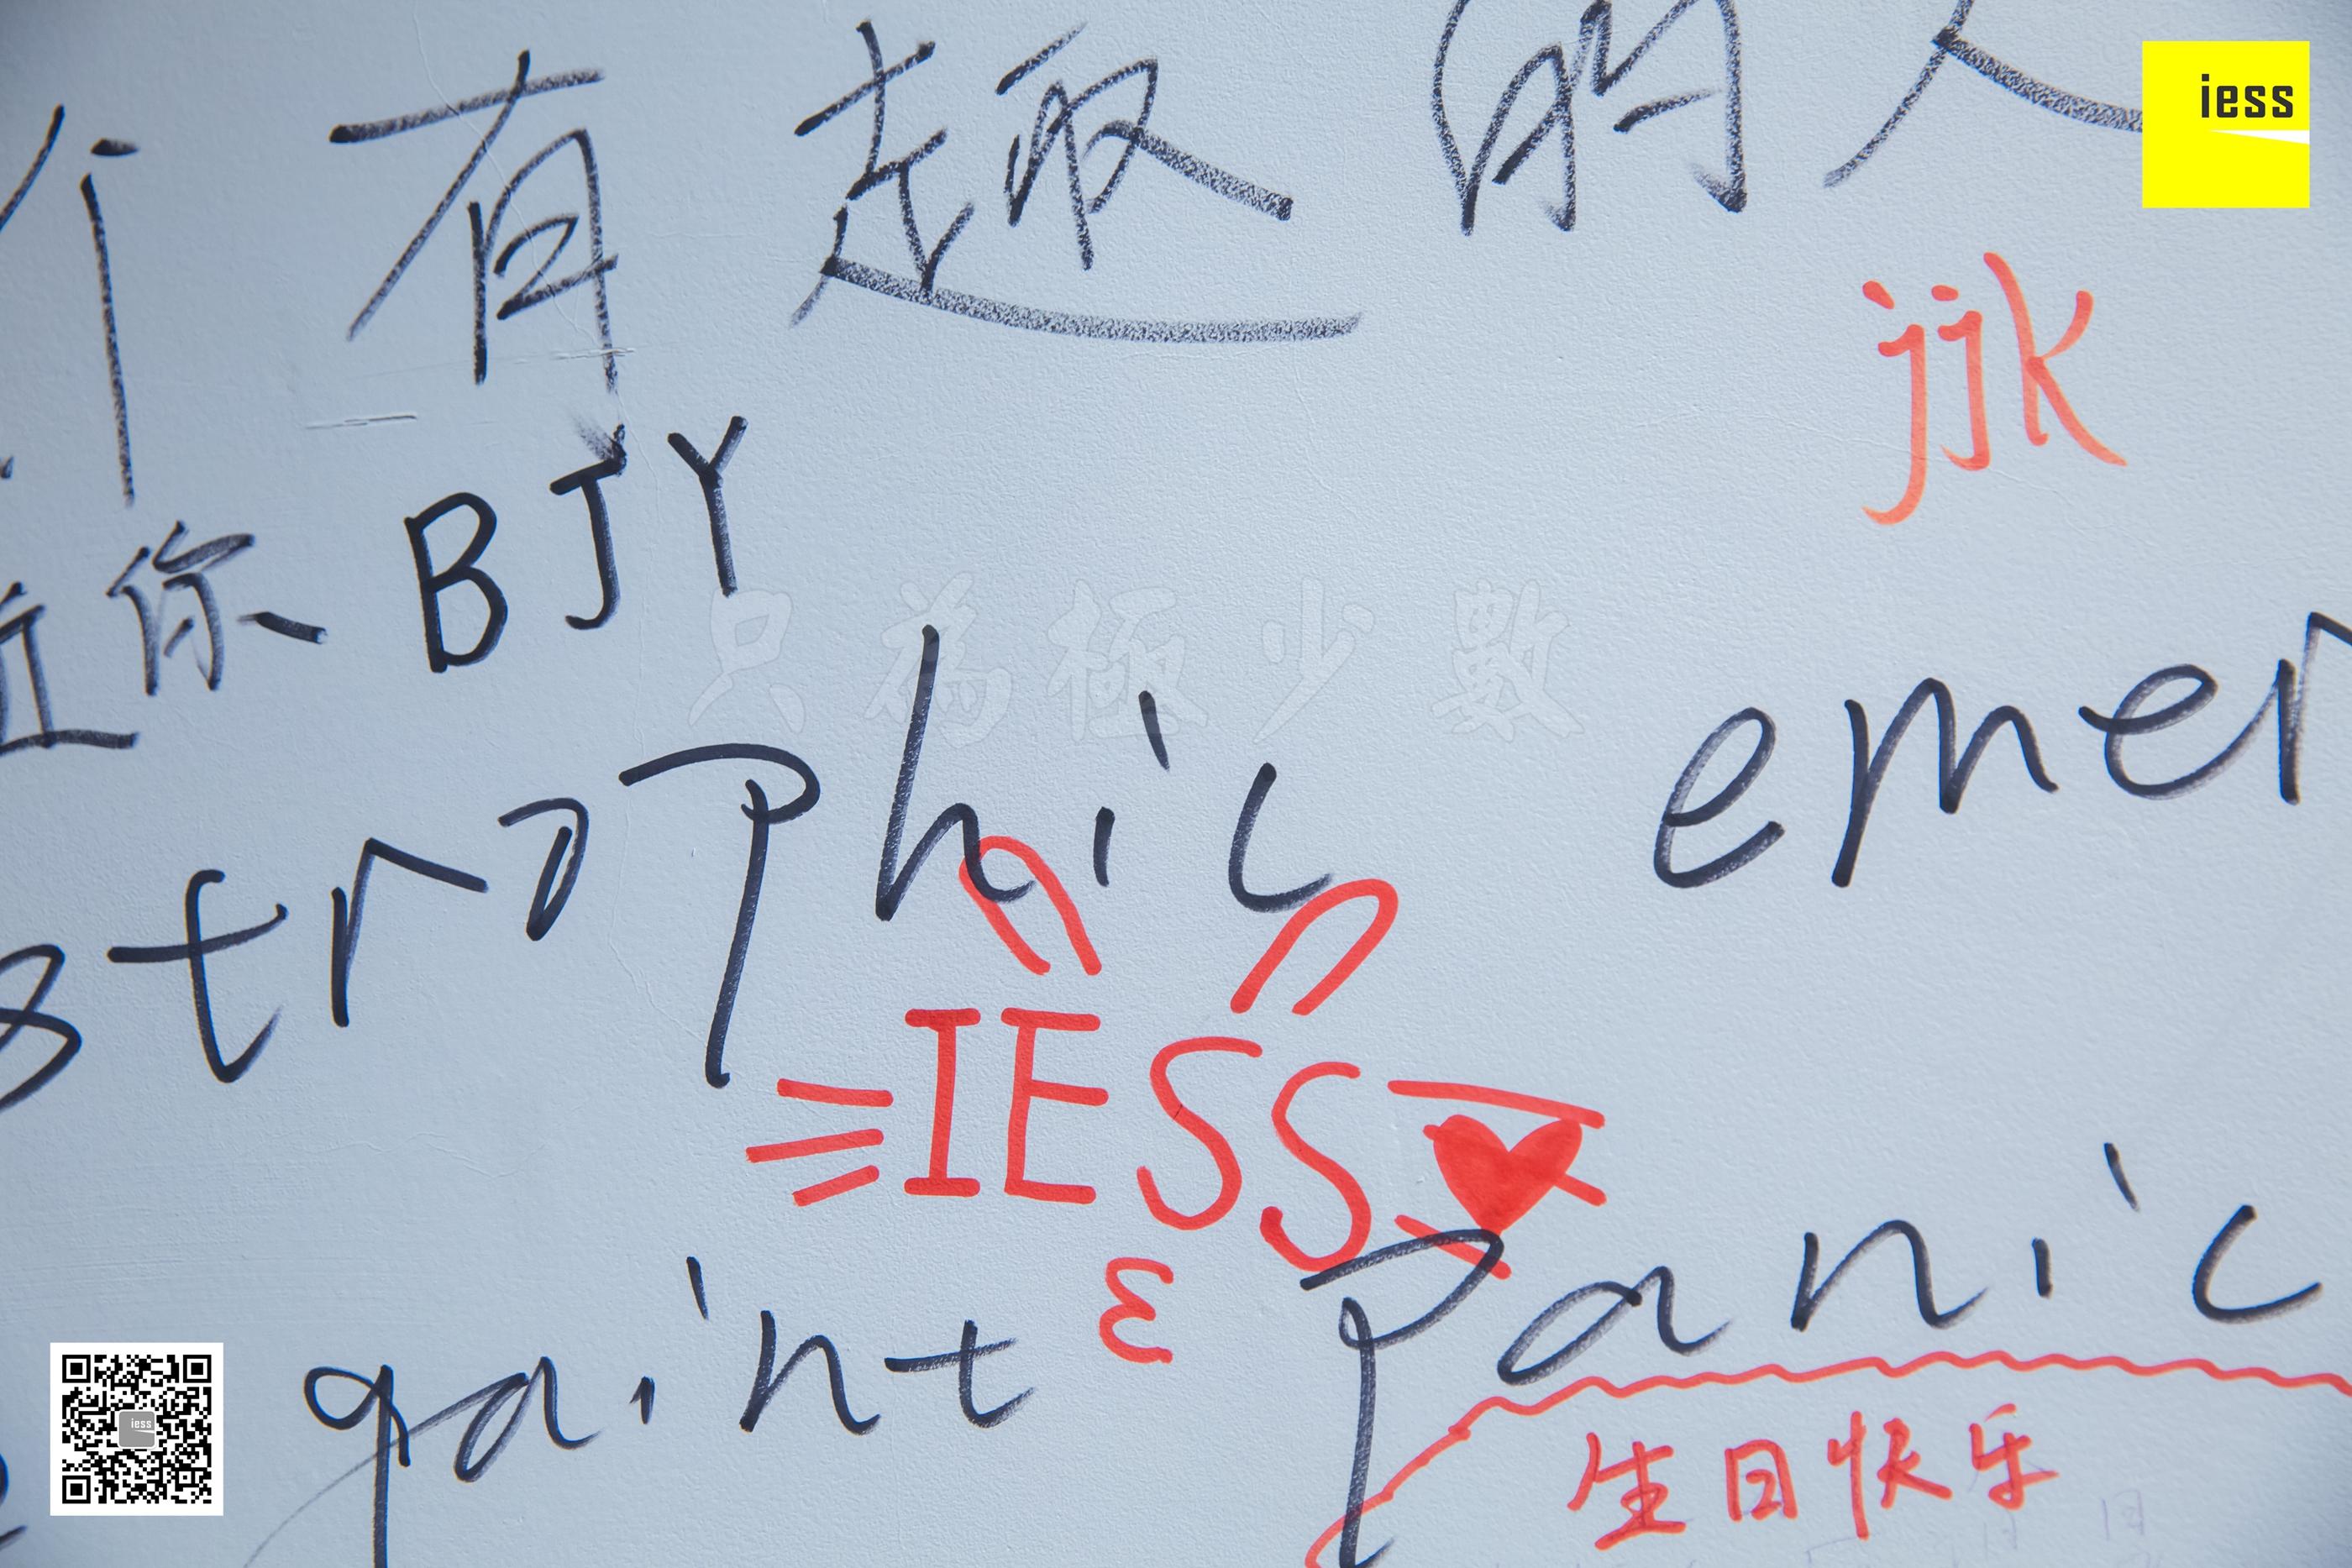 个有趣的人
iess
jjk
你、BJY
只為極少數
strophic emer
IESS
ε
gaint panic
生日快乐
iess